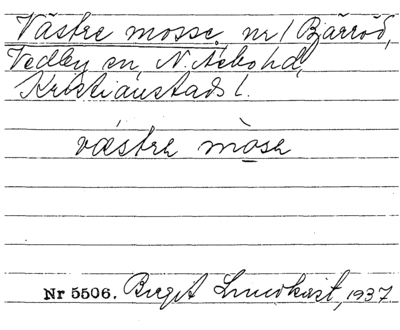 Västre mosse, nr 1 Bjärröd,
Vedby sn, N. Åsbo hd,
Kristianstads l.
væstrε mòsa
Nr 5506. Birgit Lundkvist, 1937